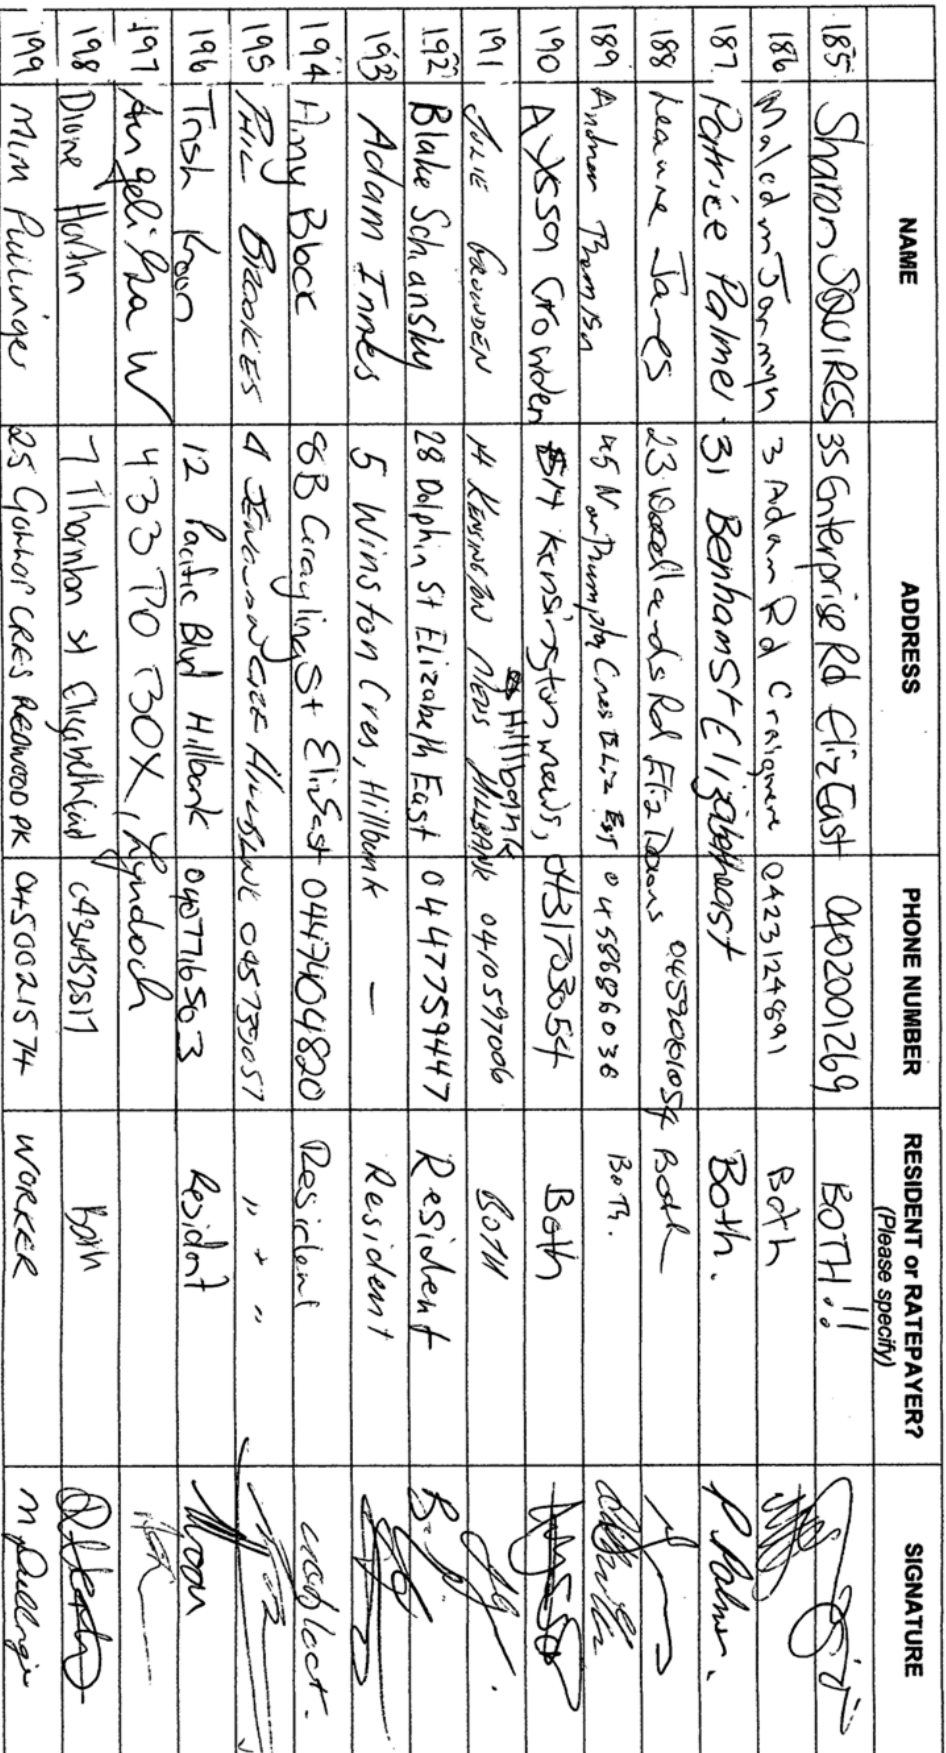 NAME ADDRESS PHONE NUMBER RESIDENT or RATEPAYER? SIGNATURE
(Please specify)
185 Sharon SQUIRES 35 Enterprise Rd Eliz East 0402001269 BOTH!!
186 Malcolm Jarmyn 3 Adam Rd Craigmore 0423124891 Both
187. Patrice Palmer. 31 Benham St Elizabeth east Both. P Palmer.
188 Leanne James 23 Woodlands Rd Eliz Downs 0459061054 Both
189 Andrew Thomson 45 Northampton Cres Eliz East 0458686036 Both.
190 Alyssa Growden 14 Kensington mews, Hillbank 0431703054 Both
191 JULIE GROWDEN 14 KENSINGTON MEWS HILLBANK 0410597006 BOTH
192 Blake Schansky 28 Dolphin St Elizabeth East 0447759447 Resident
193 Adam Innes 5 Winston Cres, Hillbank — Resident
194 Amy Block 8B Grayling St Eliz East 0447404820 Resident
195 PHIL BROOKES 4 HILLBANK " " "
196 Trish Koon 12 Pacific Blvd Hillbank 0407765603 Resident
197 Angelisa W 433 PO BOX, Lyndoch
198 7 Thornton st Elizabeth East Both
199 Mim Pullinger 25 CRES REDWOOD PK 0450021574 WORKER M Pullinger